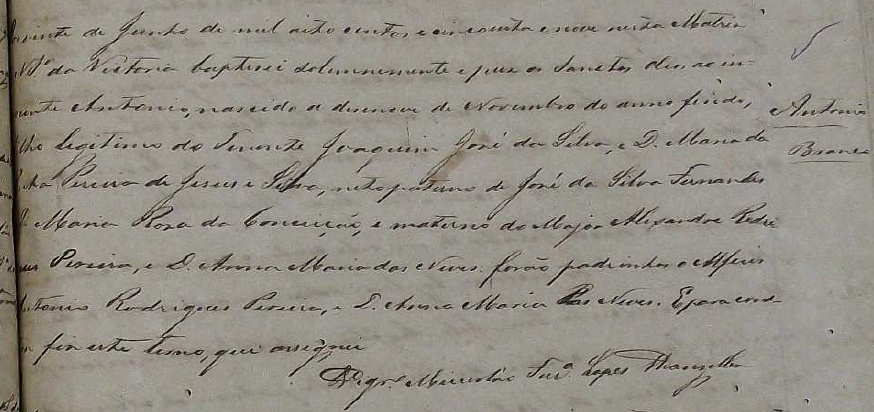 vinte de Junho de mil oito centos e cincoenta e nove nesta Matriz
da Victoria baptisei solemnemente e puz os Sanctos oleos ao in-
nocente Antonio, nascido a desenove de Novembro do anno findo,
Antonio
Branco
legitimo do Tenente Joaquim José da Silva, e D. Maria da
Pereira de Jesus e Silva, neto paterno de José da Silva Fernandes
Maria Rosa da Conceição, e materno do Major Alexandre Rodri
Pereira, e D. Anna Maria das Neves. forão padrinhos o Alferes
Antonio Rodrigues Pereira, e D. Anna Maria das Neves. E para cons-
fiz este termo, que assignei
Lopes